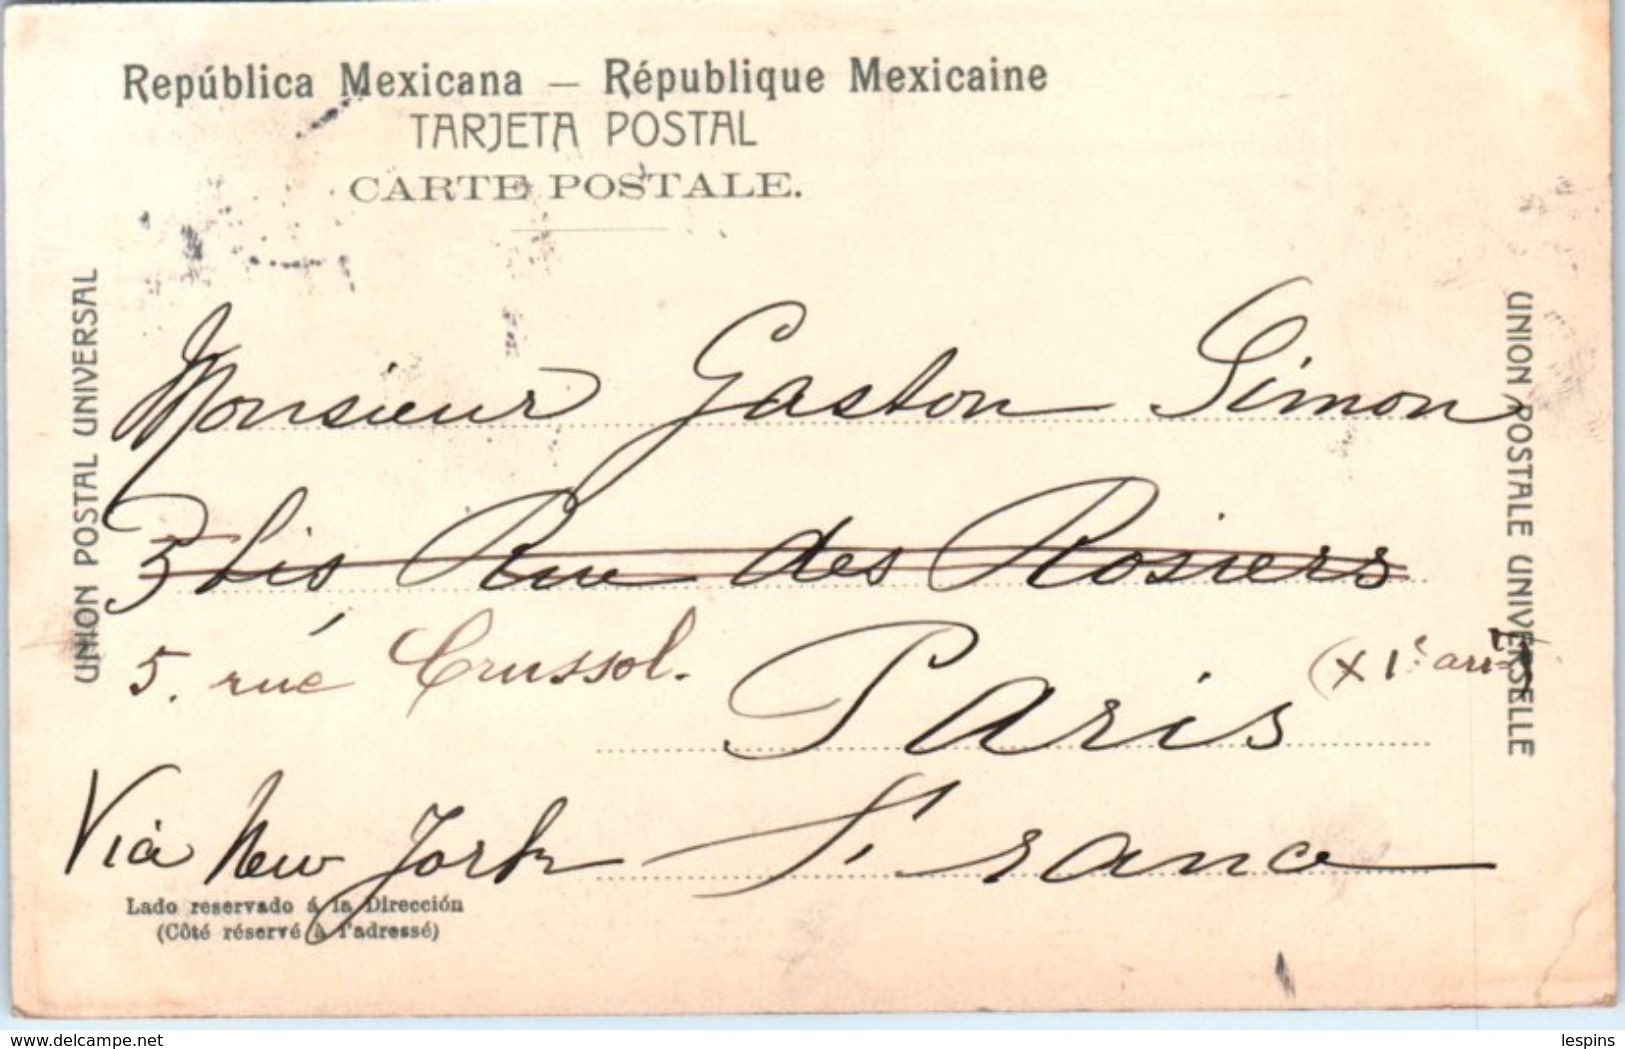 República Mexicana — République Mexicaine
TARJETA POSTAL
CARTE POSTALE.
UNION POSTAL UNIVERSAL
UNION POSTALE UNIVERSELLE
Monsieur Gaston Simon
3 bis Rue des Rosiers
5. rue Crussol.
(XIe arrt)
Paris
Via New York
France
Lado reservado á la Dirección
(Côté réservé à l'adressé)
www.delcampe.net
lespins